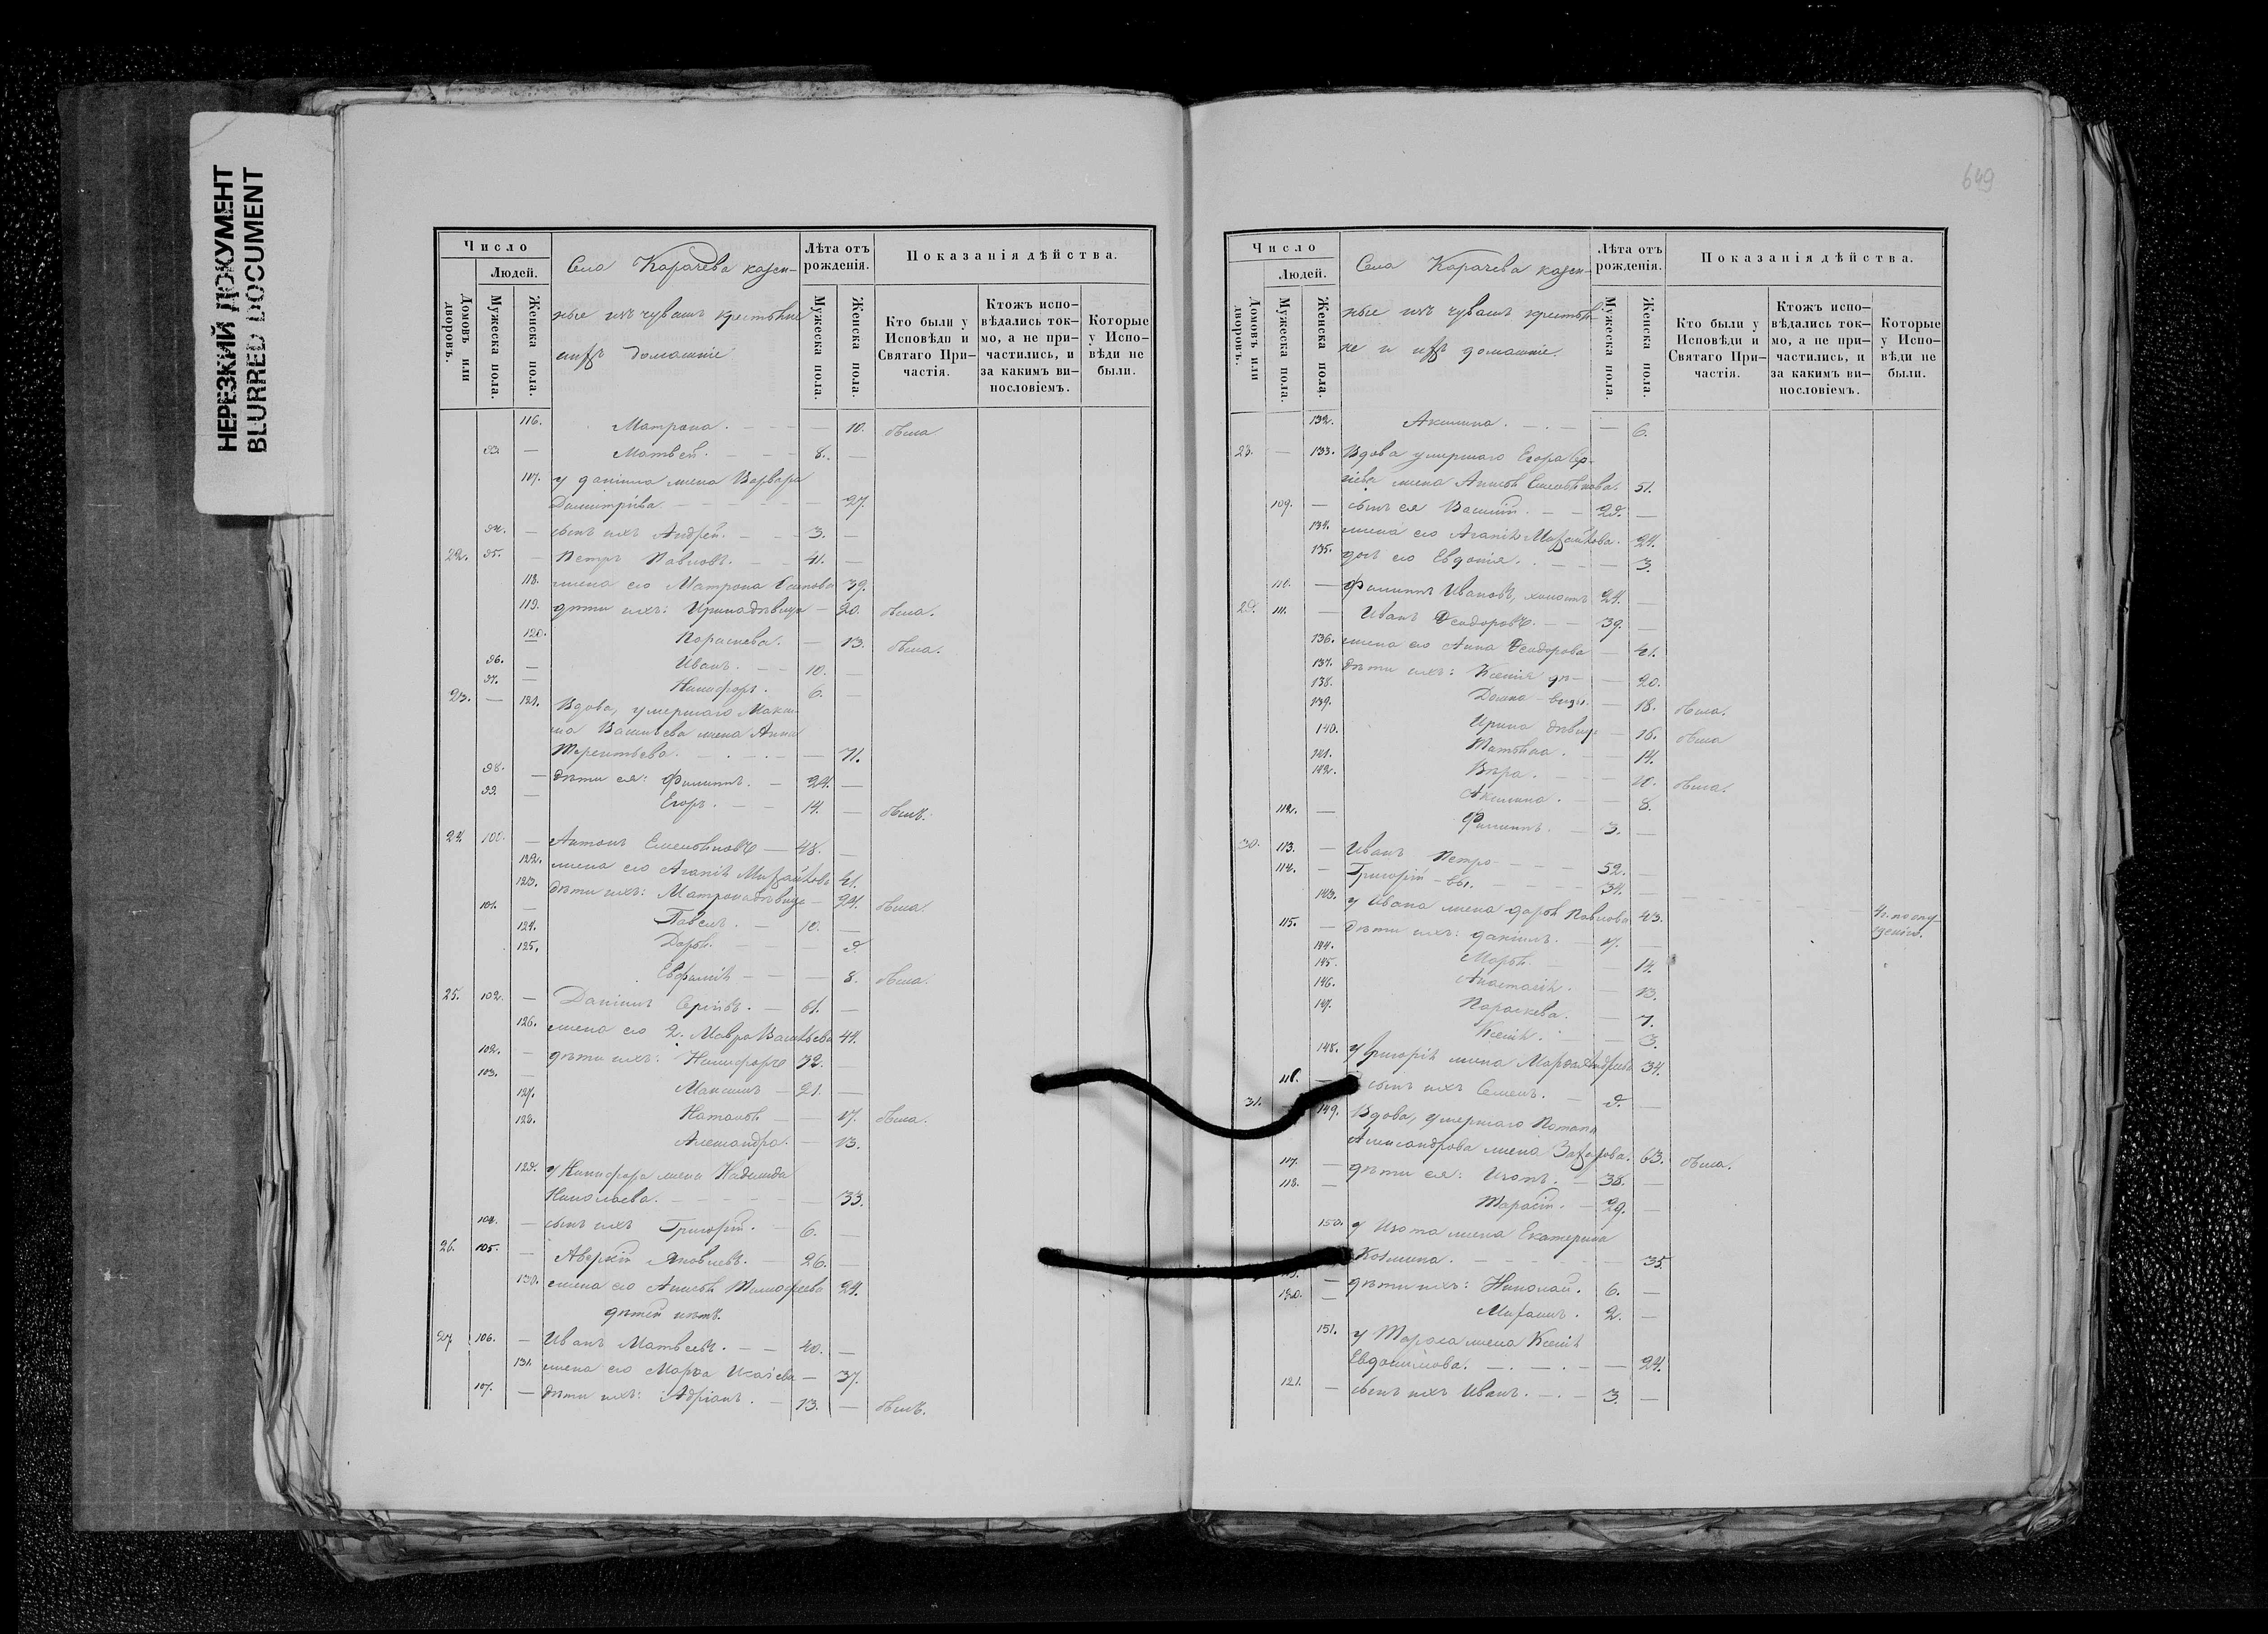 НЕРЕЗКИЙ ДОКУМЕНТ
BLURRED DOCUMENT
Число
Людей.
Домовъ или дворовъ.
Мужеска пола.
Женска пола.
Села Карачева казен-
ные изъ чувашъ крестьяне
и ихъ домашніе
Лѣта отъ рожденія.
Мужеска пола.
Женска пола.
Показанія дѣйства.
Кто были у Исповѣди и Святаго При-частія.
Ктожъ испо-вѣдались ток-мо, а не при-частились, и за какимъ ви-нословіемъ.
Которые у Испо-вѣди не были.
116. Матрона. — 10. была
93. — Матвей. 8. —
117. у Даніила жена Варвара
Димитріева — 27.
94. — сынъ ихъ Андрей. 3. —
22. 95. — Петръ Павловъ. 41. —
118. жена его Матрона Осипова 39.
119. дѣти ихъ: Ирина дѣвица — 20. была.
120. Параскева. — 13. была.
96. — Иванъ. 10. —
97. — Никифоръ. 6. —
23. — 121. Вдова, умершаго Макси-
ма Васильева жена Анна
Терентьева. — 71.
98. — дѣти ея: Филиппъ. — 24. —
99. — Егоръ. 14. — былъ.
24. 100. — Антонъ Емельяновъ — 48. —
122. жена его Агапія Михайлова 41.
123. дѣти ихъ: Матрона дѣвица — 24. была.
101. — Павелъ. — 10. —
124. Дарья. — 9.
125. Евфимія — 8. была.
25. 102. — Даніилъ Сергѣевъ. — 61. —
126. жена его 2. Мавра Васильева 44.
102. — дѣти ихъ: Никифоръ 32. —
103. — Максимъ — 21. —
127. Наталья — 17. была.
128. Александра. — 13.
129. у Никифора жена Надежда
Николаева. — 33.
104. — сынъ ихъ Григорій. — 6. —
26. 105. — Аверкій Яковлевъ. — 26. —
130. жена его Анисья Тимофеева 24.
дѣтей нѣтъ.
27. 106. — Иванъ Матвеевъ. 40. —
131. жена его Марѳа Исаіева — 37.
107. — дѣти ихъ: Адріанъ. — 13. — былъ.
649
Число
Людей.
Домовъ или дворовъ.
Мужеска пола.
Женска пола.
Села Карачева казен-
ные изъ чувашъ крестья-
не и ихъ домашніе.
Лѣта отъ рожденія.
Мужеска пола.
Женска пола.
Показанія дѣйства.
Кто были у Исповѣди и Святаго При-частія.
Ктожъ испо-вѣдались ток-мо, а не при-частились, и за какимъ ви-нословіемъ.
Которые у Испо-вѣди не были.
132. Акилина. — 6.
28. — 133. Вдова умершаго Егора Сер-
гіева жена Анисья Емельянова. 51.
109. — сынъ ея Василій. 29. —
134. жена его Агапія Михайлова. 24.
135. дочь его Евдокія. — 3.
110. — Филиппъ Ивановъ, холостъ 24. —
29. 111. — Иванъ Ѳеодоровъ. 39. —
136. жена его Анна Ѳеодорова — 41.
137. дѣти ихъ: Ксенія дѣ- — 20.
138. Домна -вицы. — 18. была.
139. Ирина дѣвица — 16. была
140. Татьяна. — 14.
141. Вѣра. — 11. была.
142. Акилина. — 8.
112. — Филиппъ. — 3. —
30. 113. — Иванъ Петро- 52. —
114. — Григорій -вы. 34. —
143. у Ивана жена Дарья Павлова 43. 4 г. по опу-щенію.
115. — дѣти ихъ: Даніилъ. 17. —
144. Марья — 14.
145. Анастасія. — 13.
146. Параскева. — 7.
147. Ксенія. — 3.
148. у Григорія жена Марѳа Андреева 34.
116. — сынъ ихъ Семенъ. — 9. —
31. 149. Вдова, умершаго Потапа
Александрова жена Захарова. 63. была.
117. — дѣти ея: Изотъ. — 38. —
118. — Тарасій. — 29. —
150. у Изота жена Екатерина
Козмина. — 35.
119. — дѣти ихъ: Николай. 6. —
120. — Михаилъ. 2. —
151. у Тараса жена Ксенія
Евдокимова. — 24.
121. — сынъ ихъ Иванъ. 3. —